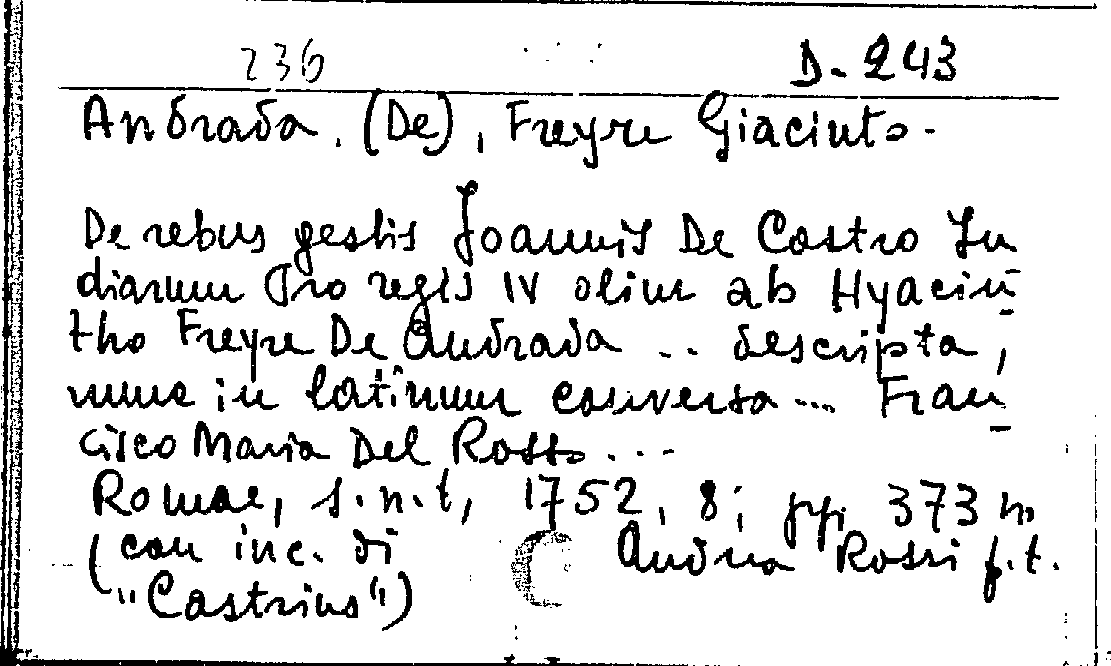 236 D. 243
Andrada. (De), Freyre Giacinto.
De rebus gestis Joannis De Castro In
diarum Pro regis IV olim ab Hyacin
tho Freyre De Andrada .. descripta,
nunc in latinum conversa... Fran
cisco Maria Del Rosso...
Romae, s.n.t, 1752, 8; pp. 373 n.
(con inc. di Andrea Rossi f.t.
"Castrius")